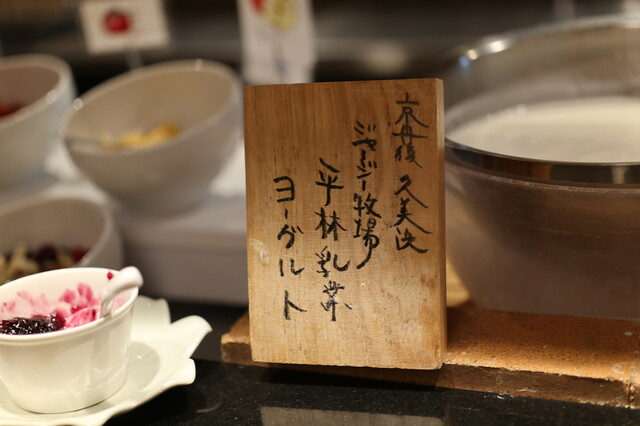 京丹後 久美浜
ジャージー牧場
平林乳業
ヨーグルト